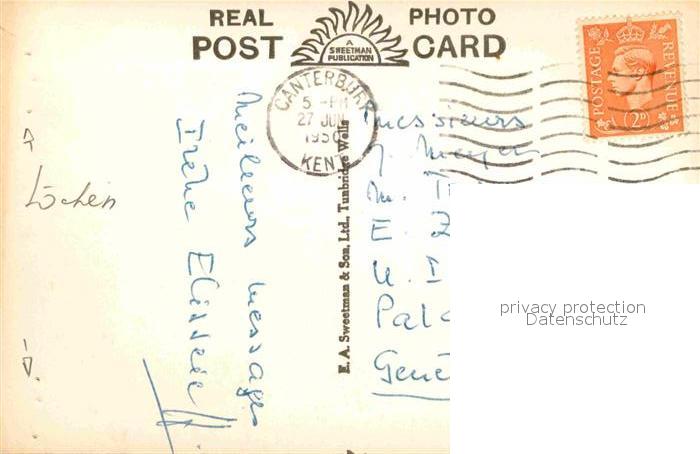 REAL PHOTO
POST CARD
A
SWEETMAN
PUBLICATION
CANTERBURY
5 - PM
27 JUN
1950
KENT
POSTAGE REVENUE
2D
Meilleurs messages
Irène
Löchen
E. A. Sweetman & Son, Ltd., Tunbridge Wells
Messieurs
J. Meyer
M. T
E. Z
U. I
Pala
Genè
privacy protection
Datenschutz